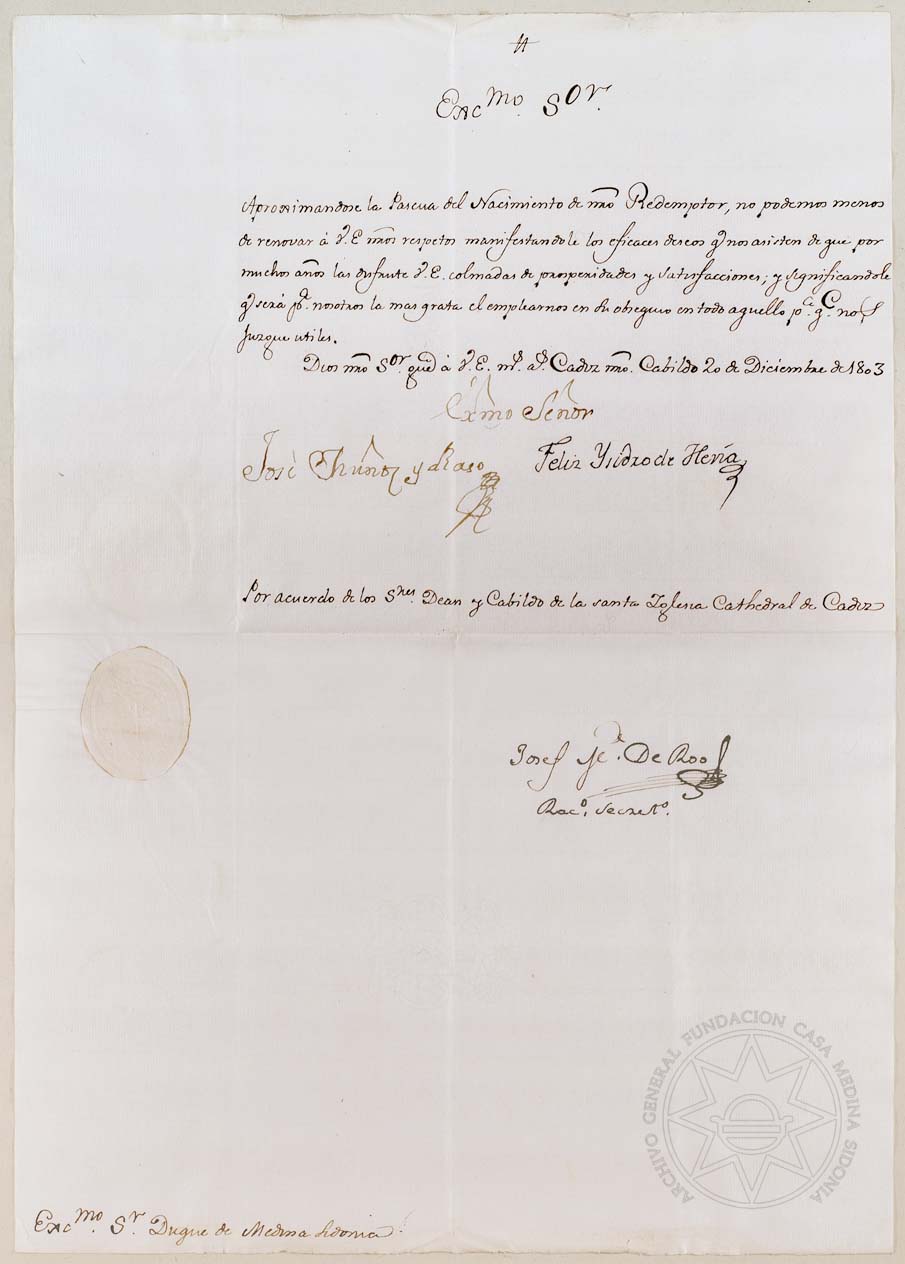 Exc.mo Sor.
Aproximandose la Pascua del Nacimiento de nro Redemptor, no podemos menos
de renovar á V.E nros respetos manifestandole los eficaces deseos q nos asisten de que por
muchos años las disfrute V.E. colmadas de prosperidades y satisfacciones; y significandole
q será pa. nosotros la mas grata el emplearnos en su obsequio en todo aquello pa. qe. nos
Juzque utiles.
Dios nro Sor. que á V.E. ms. as. Cadiz nro. Cabildo 20 de Diciembre de 1803
Exmo Señor
José Muñoz y Raso
Feliz Ysidro de Hería
Por acuerdo de los Sres. Dean y Cabildo de la santa Iglesia Cathedral de Cadiz
Josef De Roo
Raco. Secreto.
ARCHIVO GENERAL FUNDACION CASA MEDINA SIDONIA
Exc.mo. Sr. Duque de Medina Sidonia.